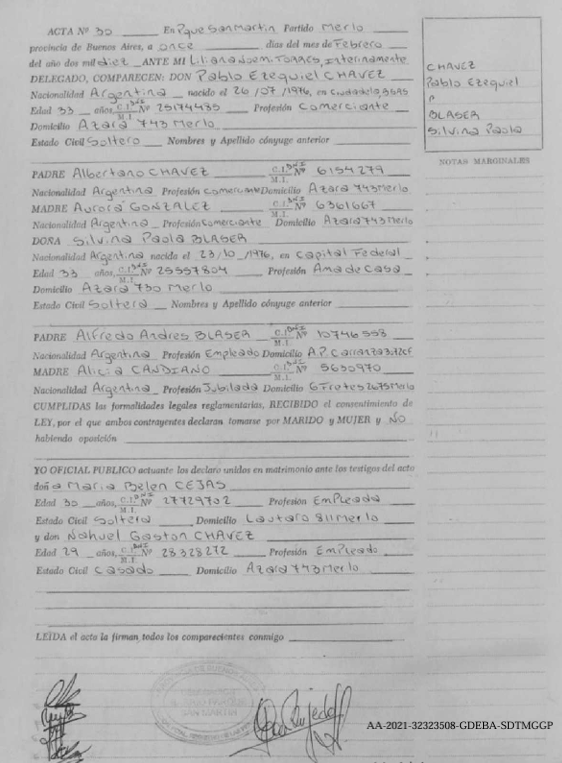 ACTA Nº 30 En Pque San Martin Partido Merlo
provincia de Buenos Aires, a once días del mes de Febrero
del año dos mil diez ANTE MI Liliana Noemi TORRES, Interinamente
DELEGADO, COMPARECEN: DON Pablo Ezequiel CHAVEZ
Nacionalidad Argentina nacido el 26/07/1976, en Ciudadela, BSAS
Edad 33 años, C.I. DNI M.I. Nº 25174485 Profesión Comerciante
Domicilio Azara 743 Merlo
Estado Civil Soltero Nombres y Apellido cónyuge anterior
PADRE Albertano CHAVEZ C.I. DNI M.I. Nº 6154279
Nacionalidad Argentina Profesión Comerciante Domicilio Azara 743 Merlo
MADRE Aurora GONZALEZ C.I. DNI M.I. Nº 6361667
Nacionalidad Argentina Profesión Comerciante Domicilio Azara 743 Merlo
DOÑA Silvina Paola BLASER
Nacionalidad Argentina nacida el 23/10/1976, en Capital Federal
Edad 33 años, C.I. DNI M.I. Nº 25557804 Profesión Ama de Casa
Domicilio Azara 730 Merlo
Estado Civil Soltera Nombres y Apellido cónyuge anterior
PADRE Alfredo Andres BLASER C.I. DNI M.I. Nº
Nacionalidad Argentina Profesión Empleado Domicilio A.P.
MADRE Alicia CANDIANO C.I. DNI M.I. Nº 5630970
Nacionalidad Argentina Profesión Jubilada Domicilio Merlo
CUMPLIDAS las formalidades legales reglamentarias, RECIBIDO el consentimiento de
LEY, por el que ambos contrayentes declaran tomarse por MARIDO y MUJER y NO
habiendo oposición
YO OFICIAL PUBLICO actuante los declaro unidos en matrimonio ante los testigos del acto
doña Maria Belen CEJAS
Edad 30 años, C.I. DNI M.I. Nº 27729702 Profesión Empleada
Estado Civil Soltera Domicilio Lautaro 811 Merlo
y don Nahuel Gaston CHAVEZ
Edad 29 años, C.I. DNI M.I. Nº 28328272 Profesión Empleado
Estado Civil Casado Domicilio Azara 743 Merlo
LEIDA el acta la firman todos los comparecientes conmigo
CHAVEZ
Pablo Ezequiel
BLASER
Silvina Paola
NOTAS MARGINALES
SAN MARTIN
AA-2021-32323508-GDEBA-SDTMGGP